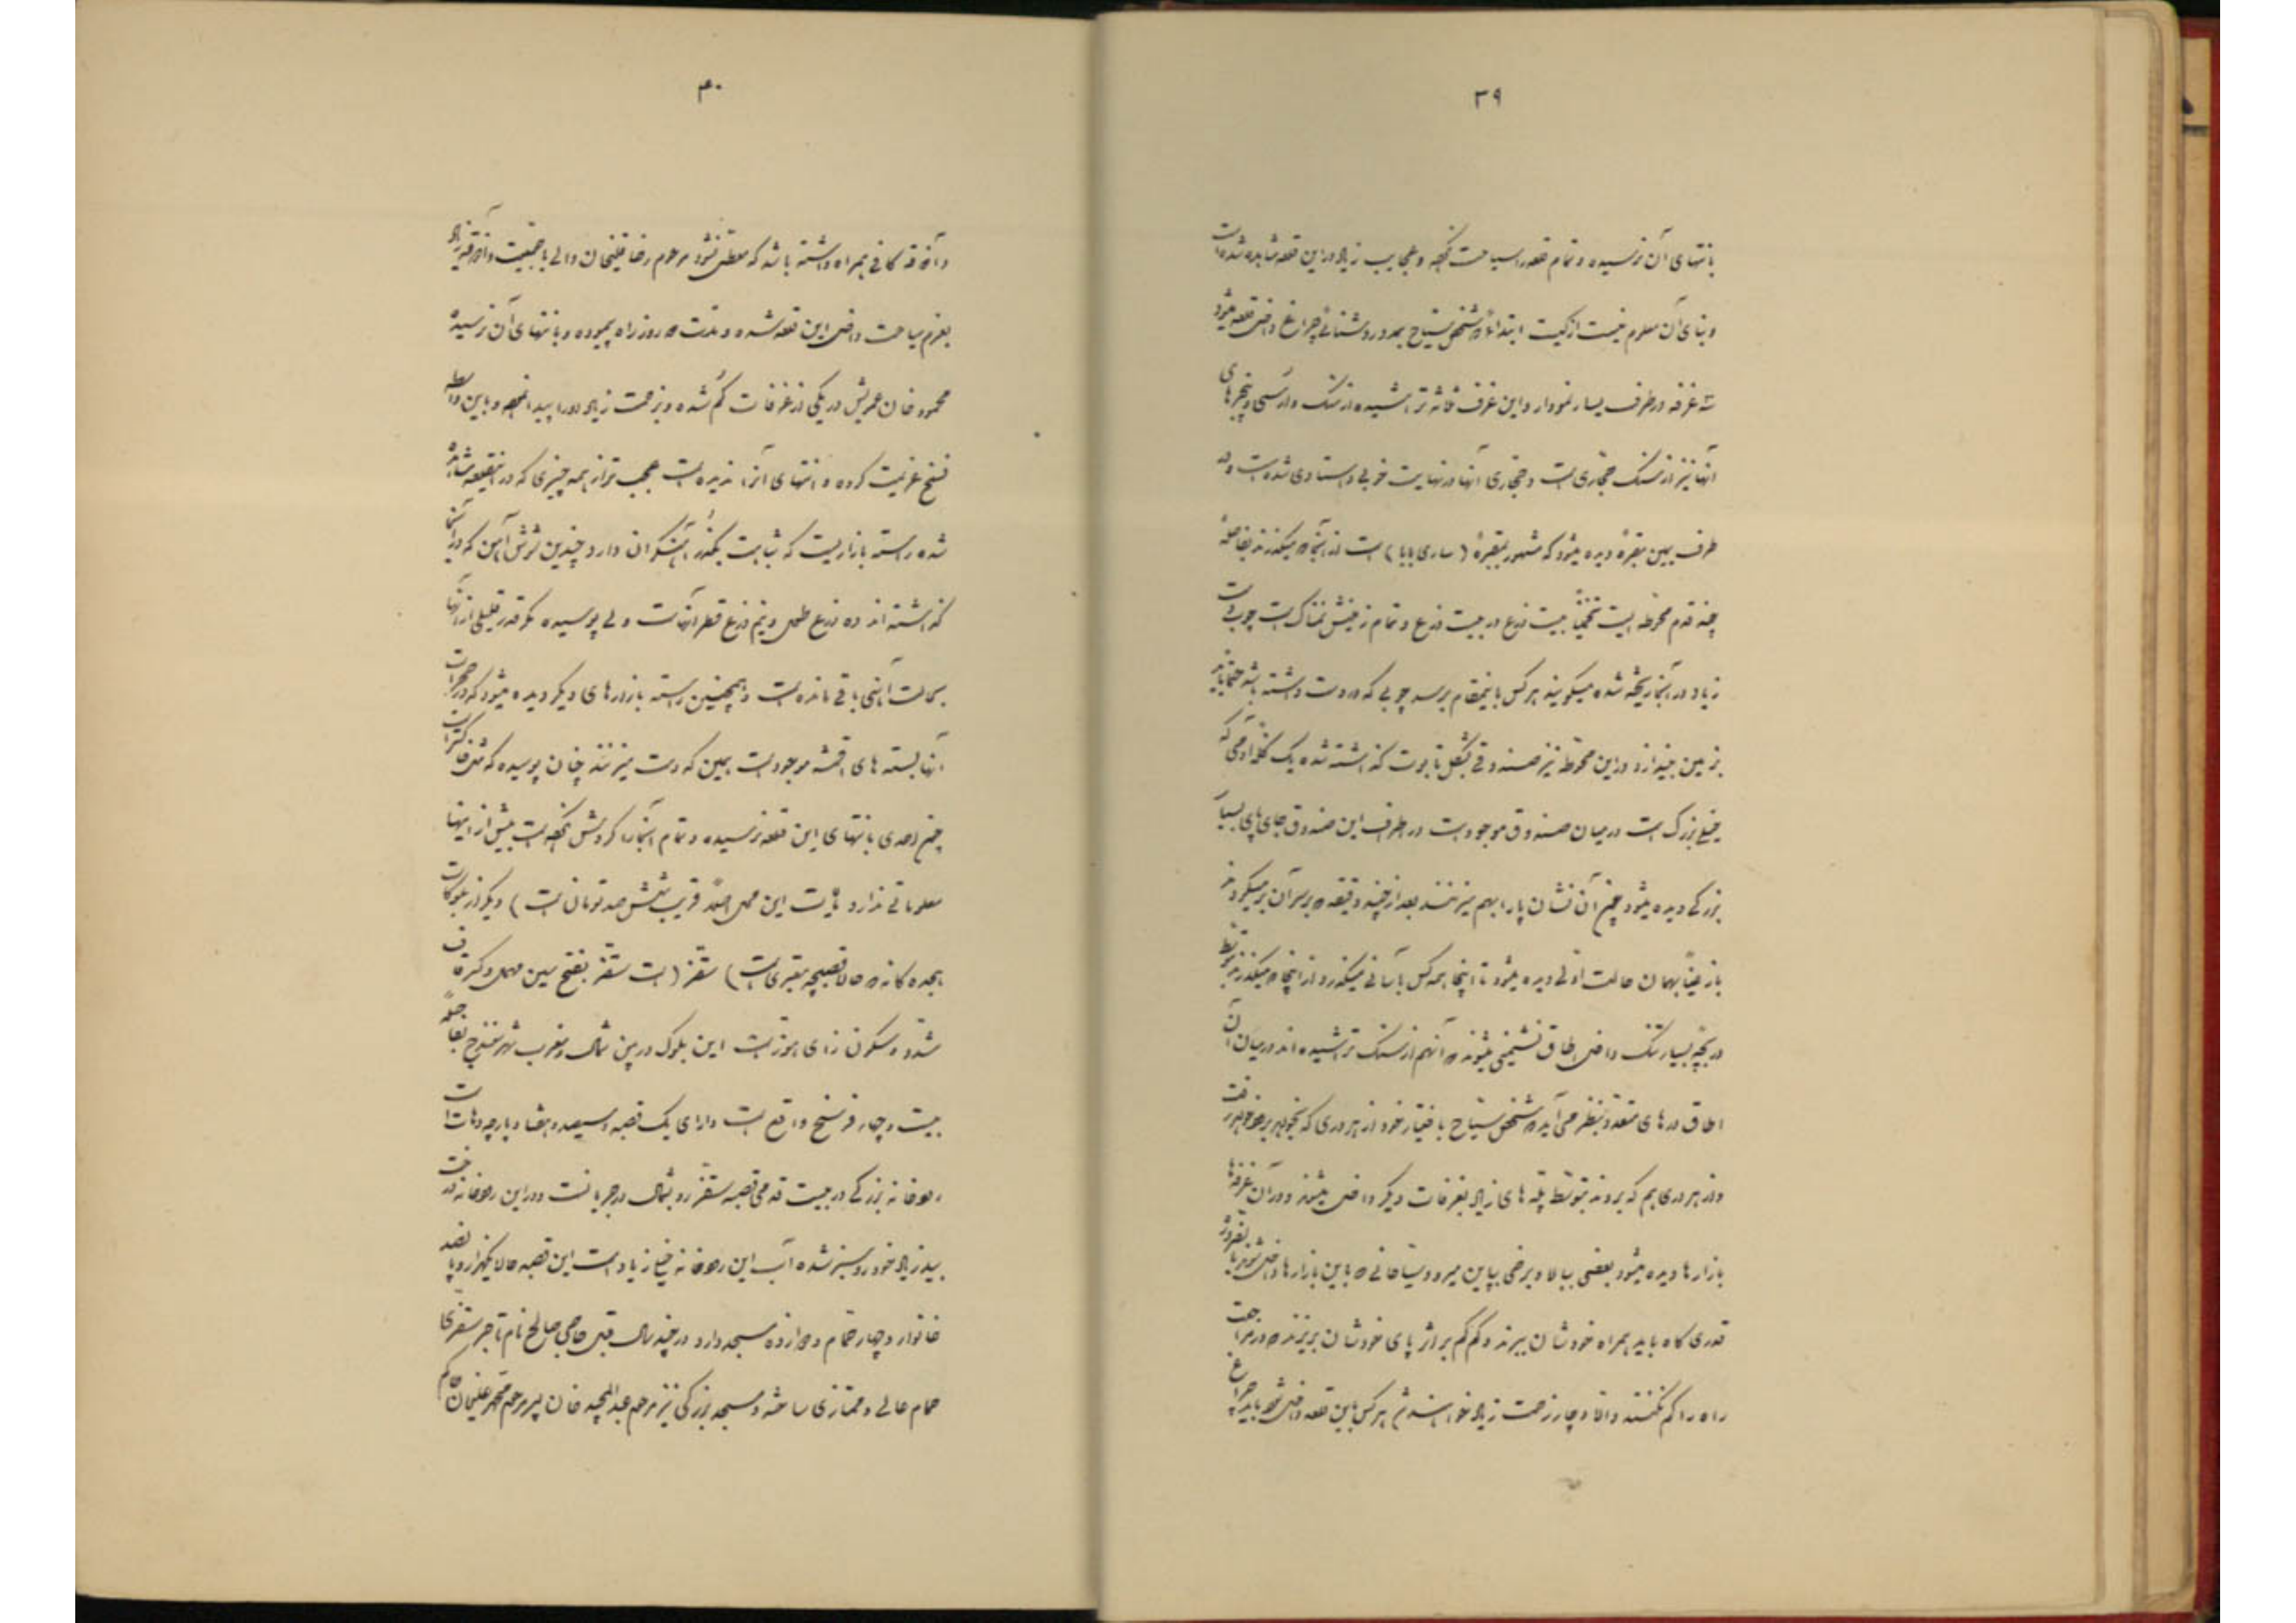 ۳۹
بانتهای آن نرسیده و تمام قلعه را سیاحت نکرده و عجایب زیاد در این قلعه مشاهده شده است
و بنای آن معلوم نیست از کیست ابتدا که شخص سیّاح بمدد روشنائی چراغ داخل قلعه میشود
سه غرفه در طرف یسار نمودار و این غرف ثلثه تراشیده از سنگ و ارسی و پنجرهای
آنها نیز از سنگ حجّاری است و حجّاری آنها در نهایت خوبی و استادی شده است و در
طرف یمین مقبرهٔ دیده میشود که مشهور بمقبرهٔ (ساری بابا) است از آنجا که میگذرند بفاصلهٔ
چند قدم محوّطه ایست تخمیناً بیست ذرع در بیست ذرع و تمام زمینش نمناک است چوب دست
زیاد در آنجا ریخته شده میگویند هر کس باینمقام برسد چوبی که در دست داشته باشد حتماً باید
بزمین بیندازد در این محوّطه نیز صندوقی بشکل تابوت گذاشته شده یک کلّه آدمی که
خیلی بزرگ است در میان صندوق موجود است در اطراف این صندوق جای پای بسیار
بزرگی دیده میشود چون آن نشان پا را بهم میزنند بعد از چند دقیقه که بر سر آن بر میگردند
باز عیناً بهمان حالت اوّلی دیده میشود تا اینجا همه کس بآسانی میگذرد از اینجا که میگذرند بتوسّط
دریچهٔ بسیار تنگ داخل اطاق نشیمنی میشوند که آنهم از سنگ تراشیده اند در میان آن
اطاق درهای متعدّد بنظر می آید که شخص سیّاح باختیار خود از هر دری که بخواهد برود خواهد رفت
و از هر دری هم که بروند بتوسّط پلّه های زیاد بغرفات دیگر داخل میشوند و در آن غرفه ها
بازارها دیده میشود بعضی ببالا و برخی بپایین میرود سیّاحانی که باین بازارها داخل شوند باید بقدر
قدری کاه باید همراه خودشان ببرند و کم کم بر اثر پای خودشان بریزند که در مراجعت
راه را گم نکنند و الّا دچار زحمت زیاد خواهند شد هر کس باین قلعه داخل شود باید چراغ
۴۰
و آذوقه کافی همراه داشته باشد که معطّل نشود مرحوم رضا قلیخان والی با جمعیت و آذوقه زیاد
بعزم سیاحت داخل این قلعه شده و مدّت روز راه پیموده و بانتهای آن نرسیده
محمود خان عمویش در یکی از غرفات گم شده و بزحمت زیاد او را پیدا نموده و باین واسطه
فسخ عزیمت کرده و انتهای آنرا ندیده است عجیب تر از همه چیزی که در اینقلعه مشاهده
شده راسته بازاریست که شباهت بگذر آهنگران دارد چندین شوش آهن که در آنجا
گذاشته اند ده ذرع طول و نیم ذرع قطر آنهاست ولی پوسیده مگر قدر قلیلی از آنها
بحالت آهنی باقی مانده است و همچنین راسته بازارهای دیگر دیده میشود که در حجرات
آنها بسته های اقمشه موجود است همین که دست میزنند چنان پوسیده که مثل خاکستر است
چون احدی بانتهای این قلعه نرسیده و تمام آنجا را گردش نکرده است بیش از اینها
معلوماتی ندارد مالیات این محال اصلاً قریب شش صد تومان است) دیگر از بلوکات
هجده گانه که حالا قصبچه معتبری است) سقّز (است سقّز بفتح سین مهمل و کسر قاف
مشدّد و سکون زای هوّز است این بلوک در بین شمال و مغرب شهر سنندج بفاصلهٔ
بیست و چهار فرسخ واقع است دارای یک قصبه وسیعه و هفتاد پارچه دهات است
رودخانه بزرگی در بیست قدمی قصبه سقّز رو بشمال در جریانست و در این رودخانه درخت
بید زیاد خودرو سبز شده آب این رودخانه خیلی زیاد است این قصبه حالا یکهزار و پانصد
خانوار و چهار حمّام و دوازده مسجد دارد در چند سال قبل حاجی صالح نام تاجر سقّزی
حمام عالی و ممتازی ساخته و مسجد بزرگی نیز مرحوم عبدالمجید خان پسر مرحوم محمّد علیخان حاکم